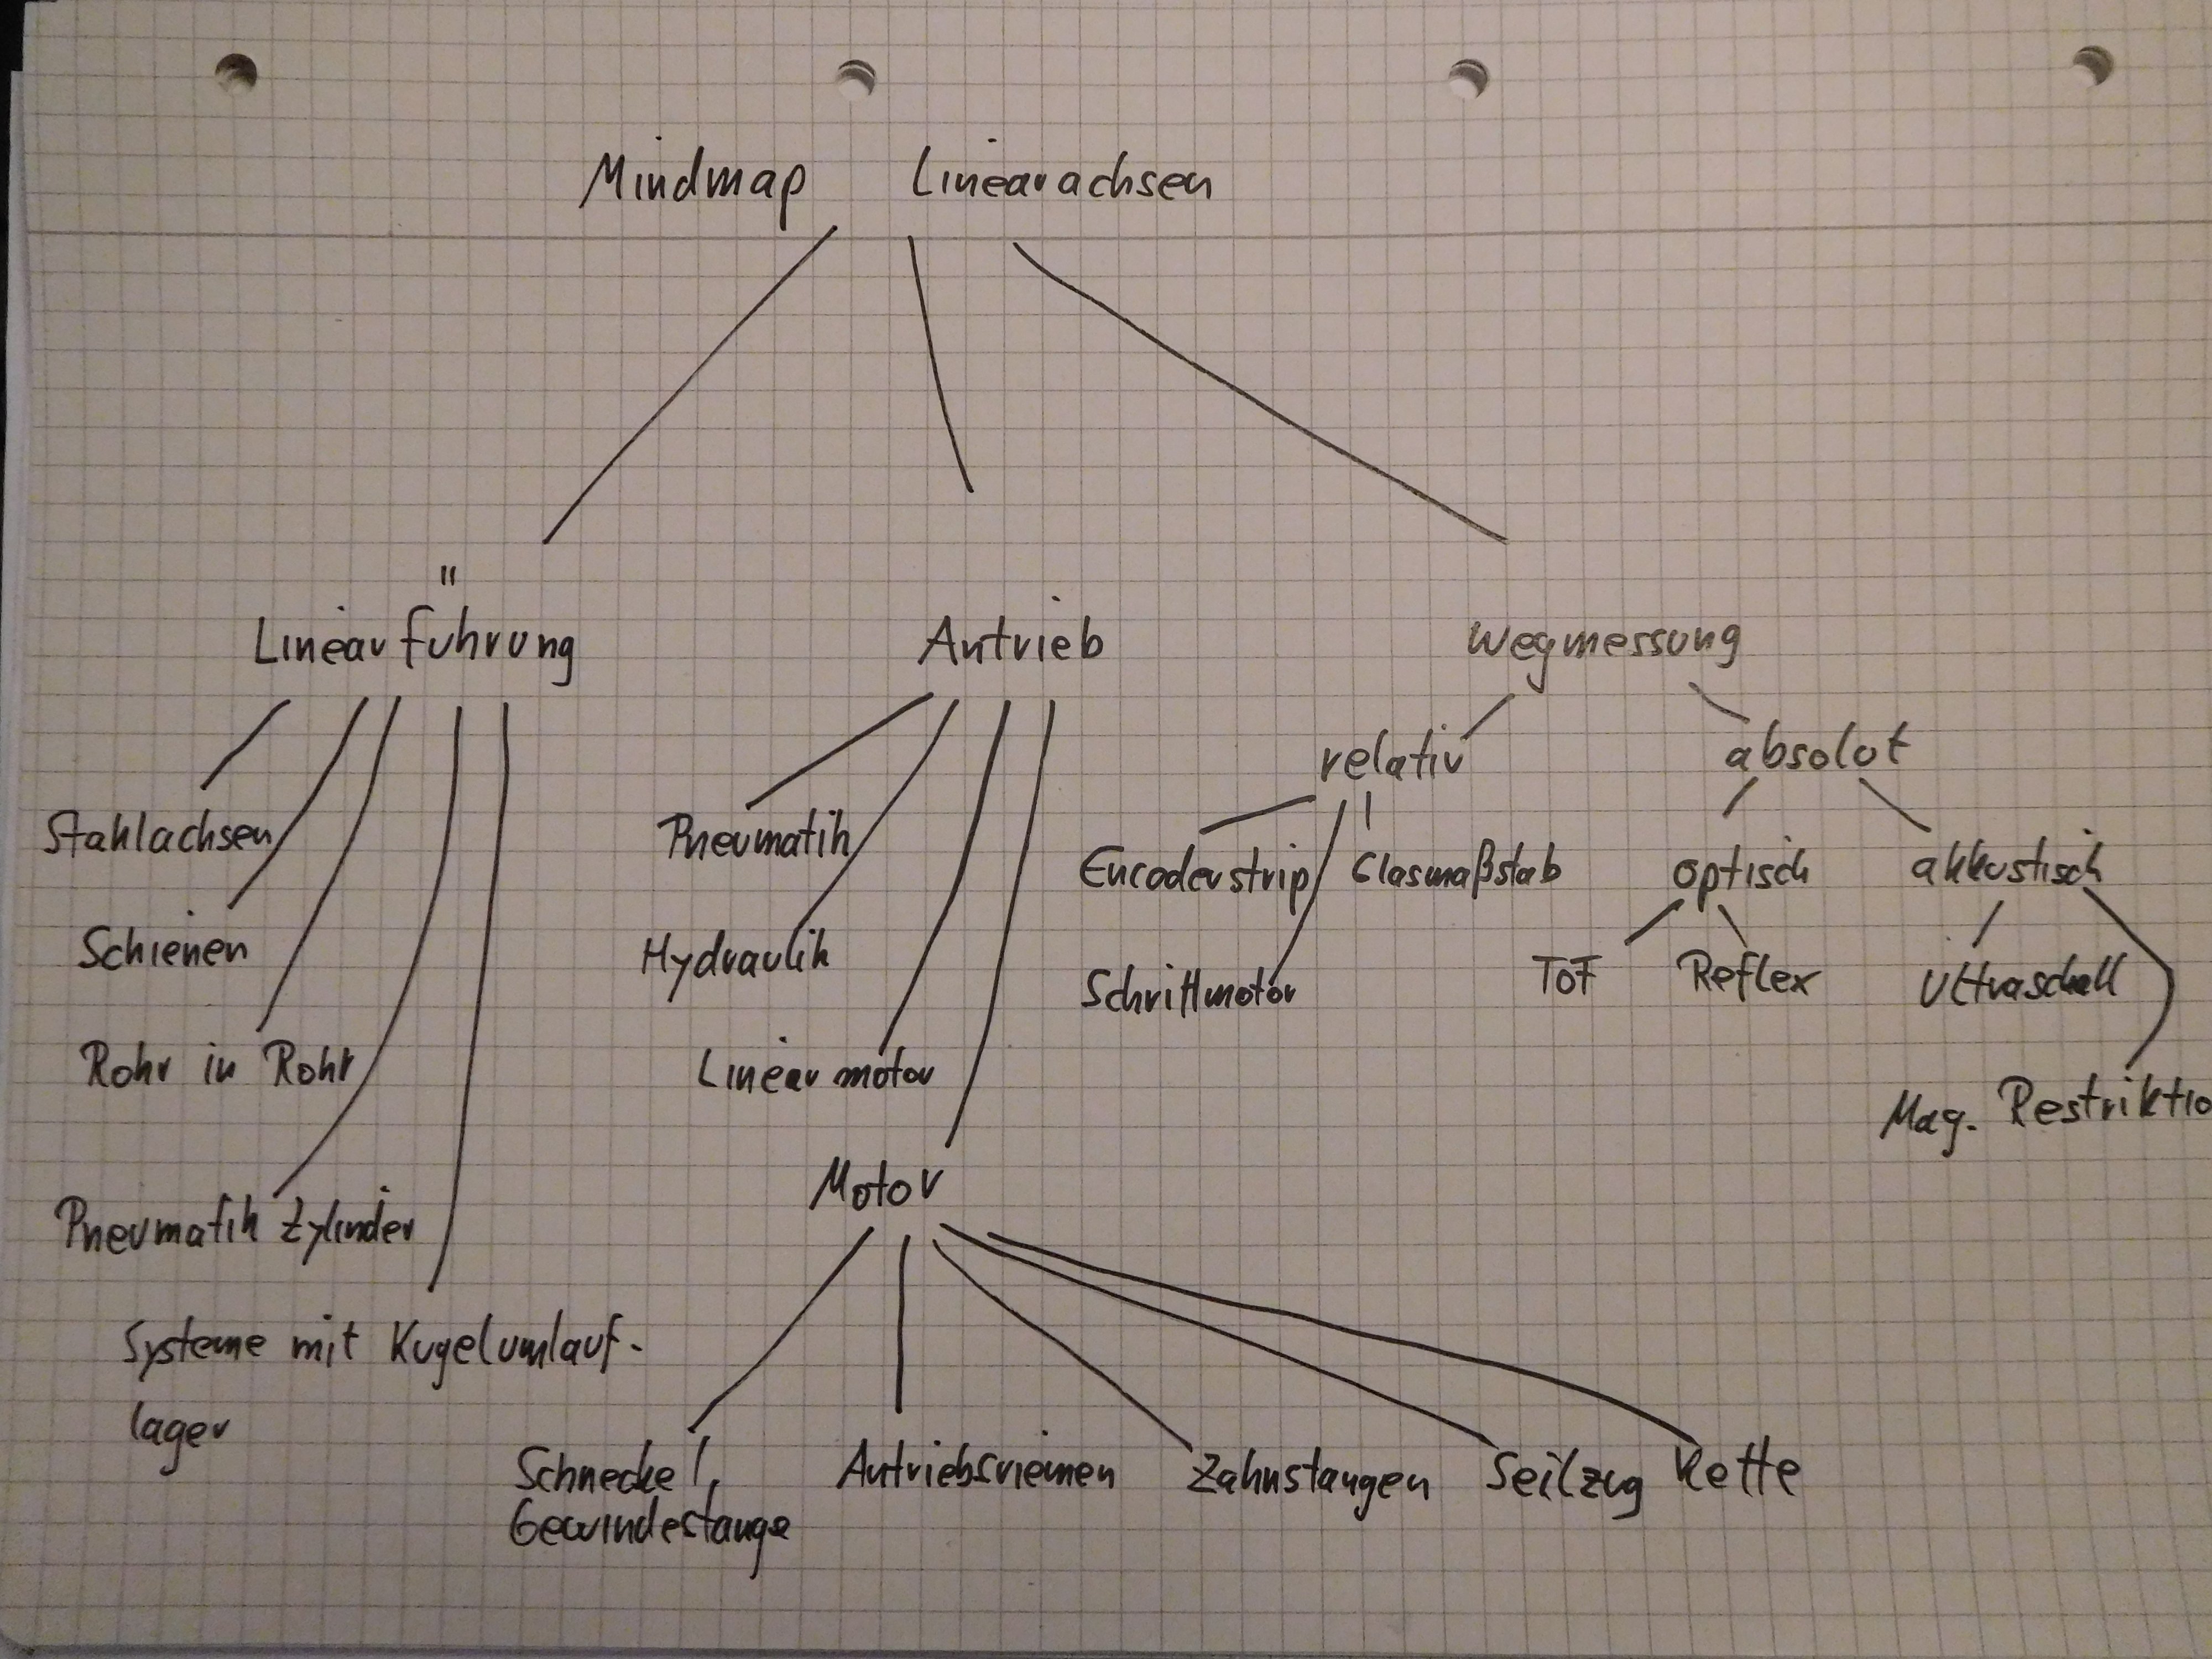 Mindmap Linearachsen
Linearführung
Antrieb
Wegmessung
relativ
absolut
Stahlachsen
Pneumatik
Encoderstrip
Glasmaßstab
optisch
akkustisch
Schienen
Hydraulik
Schrittmotor
ToF
Reflex
Ultraschall
Rohr in Rohr
Linearmotor
Mag. Restriktio
Pneumatik Zylinder
Motor
Systeme mit Kugelumlauf-
lager
Schnecke /
Gewindestange
Antriebsriemen
Zahnstangen
Seilzug
Kette